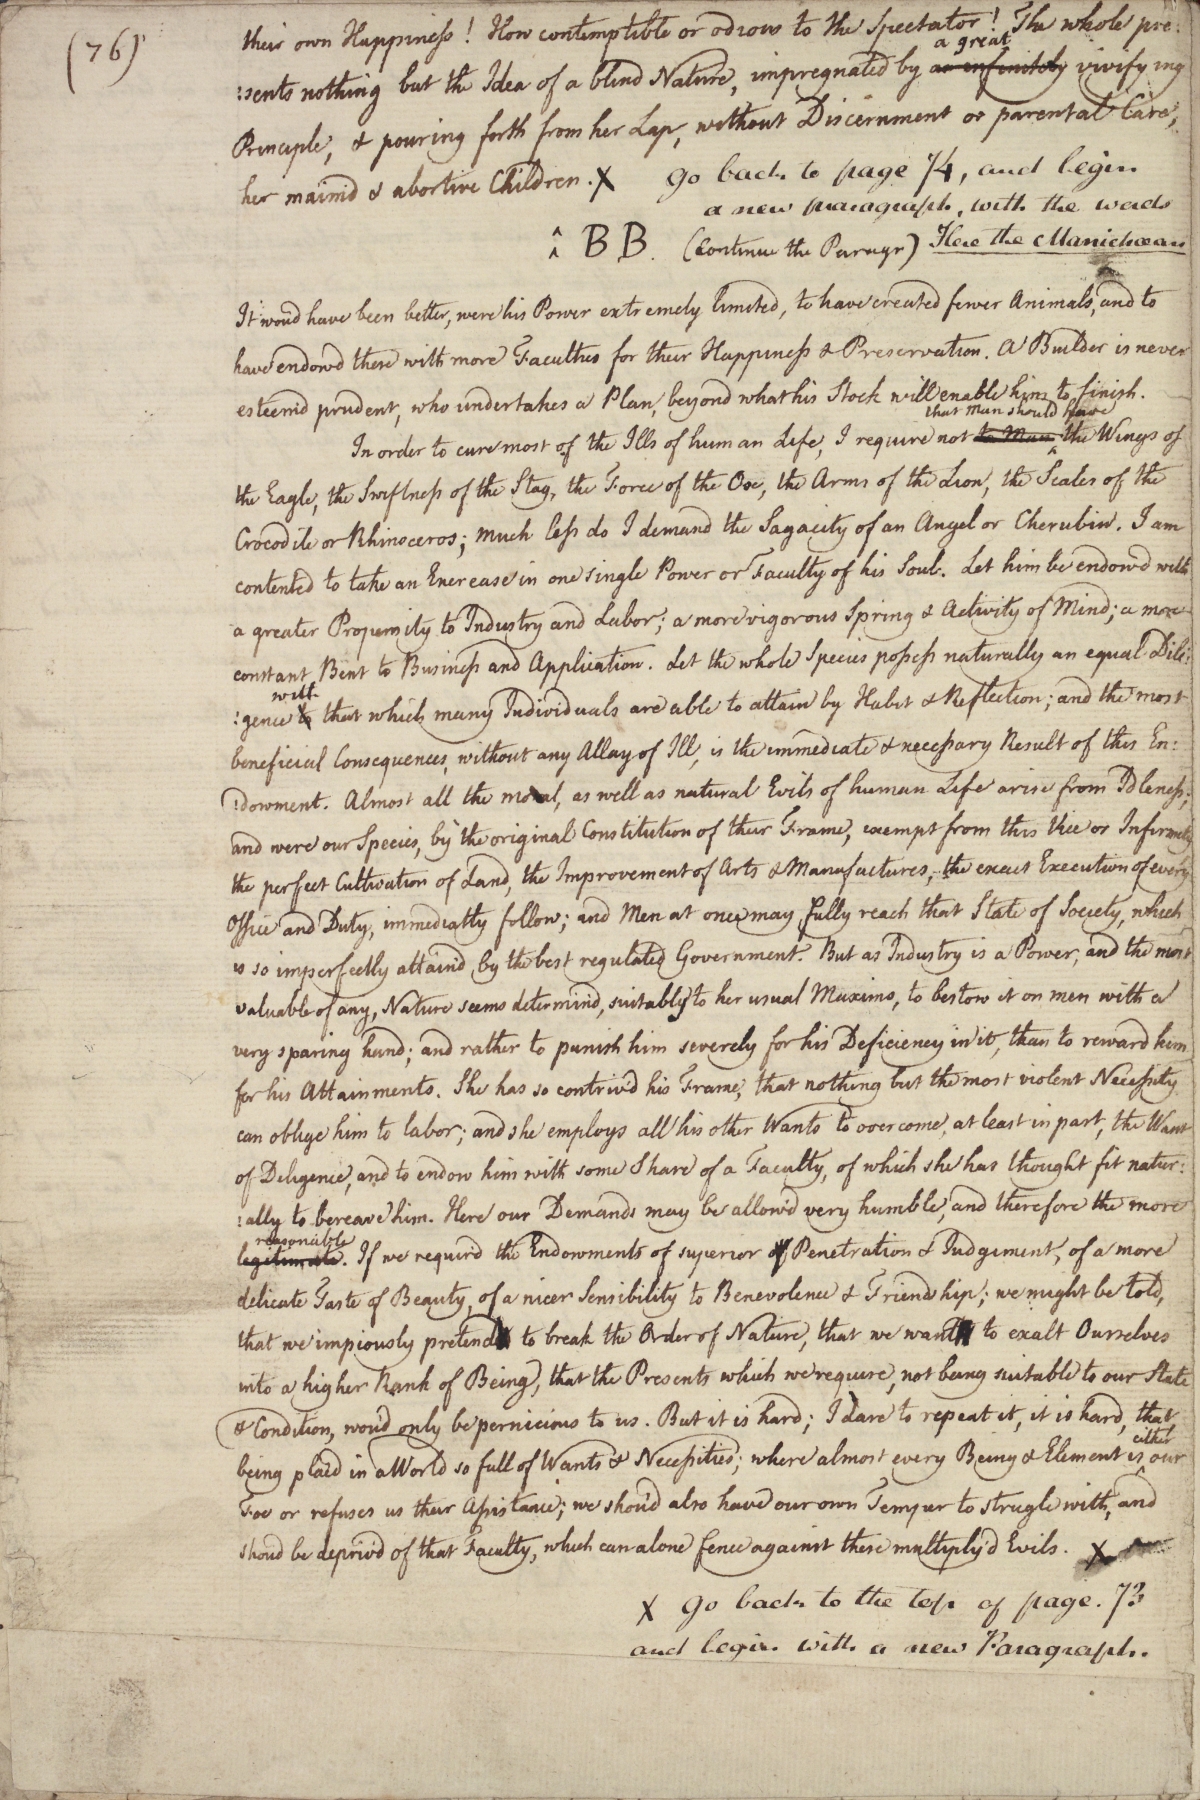 (76)
their own Happiness! How contemptible or odious to the Spectator! The whole pre:
a great
:sents nothing but the Idea of a blind Nature, impregnated by an infinitely vivifying
Principle, & pouring forth from her Lap, without Discernment or parental Care,
her maim'd & abortive Children. X go back to page 74, and begin
a new paragraph, with the words
BB. (Continue the Paragr) Here the Manichæan
It woud have been better, were his Power extremely limited, to have created fewer Animals, and to
have endow'd these with more Faculties for their Happiness & Preservation. A Builder is never
esteem'd prudent, who undertakes a Plan, beyond what his Stock will enable him to finish.
that man should have
In order to cure most of the Ills of human Life, I require not to Man the Wings of
the Eagle, the Swiftness of the Stag, the Force of the Ox, the Arms of the Lion, the Scales of the
Crocodile or Rhinoceros; much less do I demand the Sagacity of an Angel or Cherubin. I am
contented to take an Encrease in one single Power or Faculty of his Soul. Let him be endow'd with
a greater Propensity to Industry and Labor; a more vigorous Spring & Activity of Mind; a more
constant Bent to Business and Application. Let the whole Species possess naturally an equal Dili:
with
:gence to that which many Individuals are able to attain by Habit & Reflection; and the most
beneficial Consequences, without any Allay of Ill, is the immediate & necessary Result of this En:
:dowment. Almost all the moral, as well as natural Evils of human Life arise from Idleness;
and were our Species, by the original Constitution of their Frame, exempt from this Vice or Infirmity,
the perfect Cultivation of Land, the Improvement of Arts & Manufactures, the exact Execution of every
Office and Duty, immediatly follow; and Men at once may fully reach that State of Society, which
is so imperfectly attain'd by the best regulated Government. But as Industry is a Power, and the most
valuable of any, Nature seems determind, suitably to her usual Maxims, to bestow it on men with a
very sparing hand; and rather to punish him severely for his Deficiency in it, than to reward him
for his Attainments. She has so contriv'd his Frame, that nothing but the most violent Necessity
can oblige him to labor; and she employs all his other Wants to overcome, at least in part, the Want
of Diligence, and to endow him with some Share of a Faculty, of which she has thought fit natur:
:ally to bereave him. Here our Demands may be allow'd very humble, and therefore the more
reasonable
legitimate. If we requir'd the Endowments of superior Penetration & Judgement, of a more
delicate Taste of Beauty, of a nicer Sensibility to Benevolence & Friendship; we might be told,
that we impiously pretend to break the Order of Nature, that we want to exalt Ourselves
into a higher Rank of Being, that the Presents which we require, not being suitable to our State
& Condition, wou'd only be pernicious to us. But it is hard; I dare to repeat it, it is hard, that
either
being plac'd in a World so full of Wants & Necessities; where almost every Being & Element is our
Foe or refuses us their Assistance; we shou'd also have our own Temper to strugle with, and
shoud be depriv'd of that Faculty, which can alone fence against these multiply'd Evils. X
X go back to the top of page. 73
and begin with a new Paragraph.